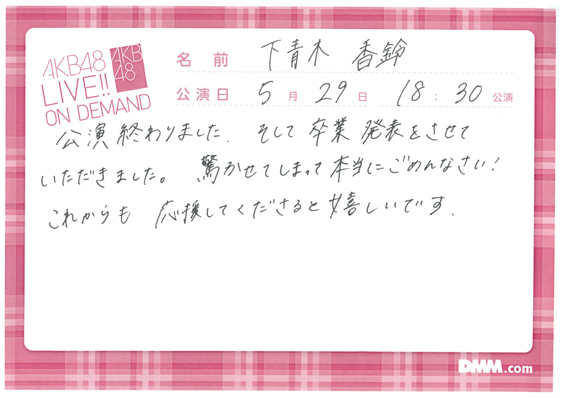 AKB48
LIVE!!
ON DEMAND
AKB
48
名前 下青木 香鈴
公演日 5月29日 18:30公演
公演終わりました. そして卒業発表をさせて
いただきました。 驚かせてしまって本当にごめんなさい!
これからも 応援してくださると嬉しいです.
DMM.com